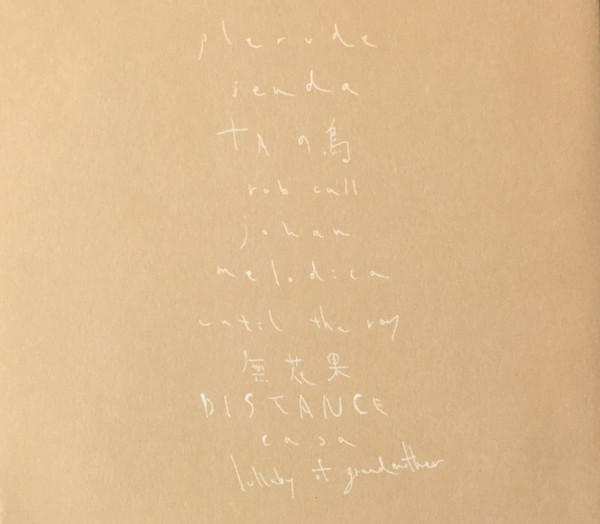 plerude
ienda
十月の鳥
rob call
johan
melodica
until the ray
無花果
DISTANCE
casa
lullaby of grandmother